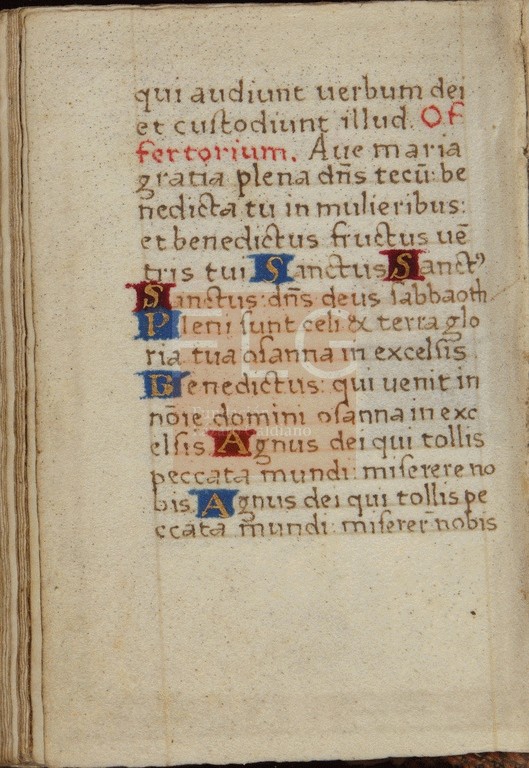 qui audiunt uerbum dei
et custodiunt illud. Of
fertorium. Aue maria
gratia plena dn̄s tecū: be
nedicta tu in mulieribus:
et benedictus fructus uē
tris tui Sanctus Sanctꝰ
Sanctus: dn̄s deus sabbaoth
Pleni sunt celi & terra glo
ria tua osanna in excelsis
Benedictus: qui uenit in
nōie domini osanna in exc
elsis Agnus dei qui tollis
peccata mundi: miserere no
bis Agnus dei qui tollis pe
ccata mundi: miserer̄ nobis
FLG